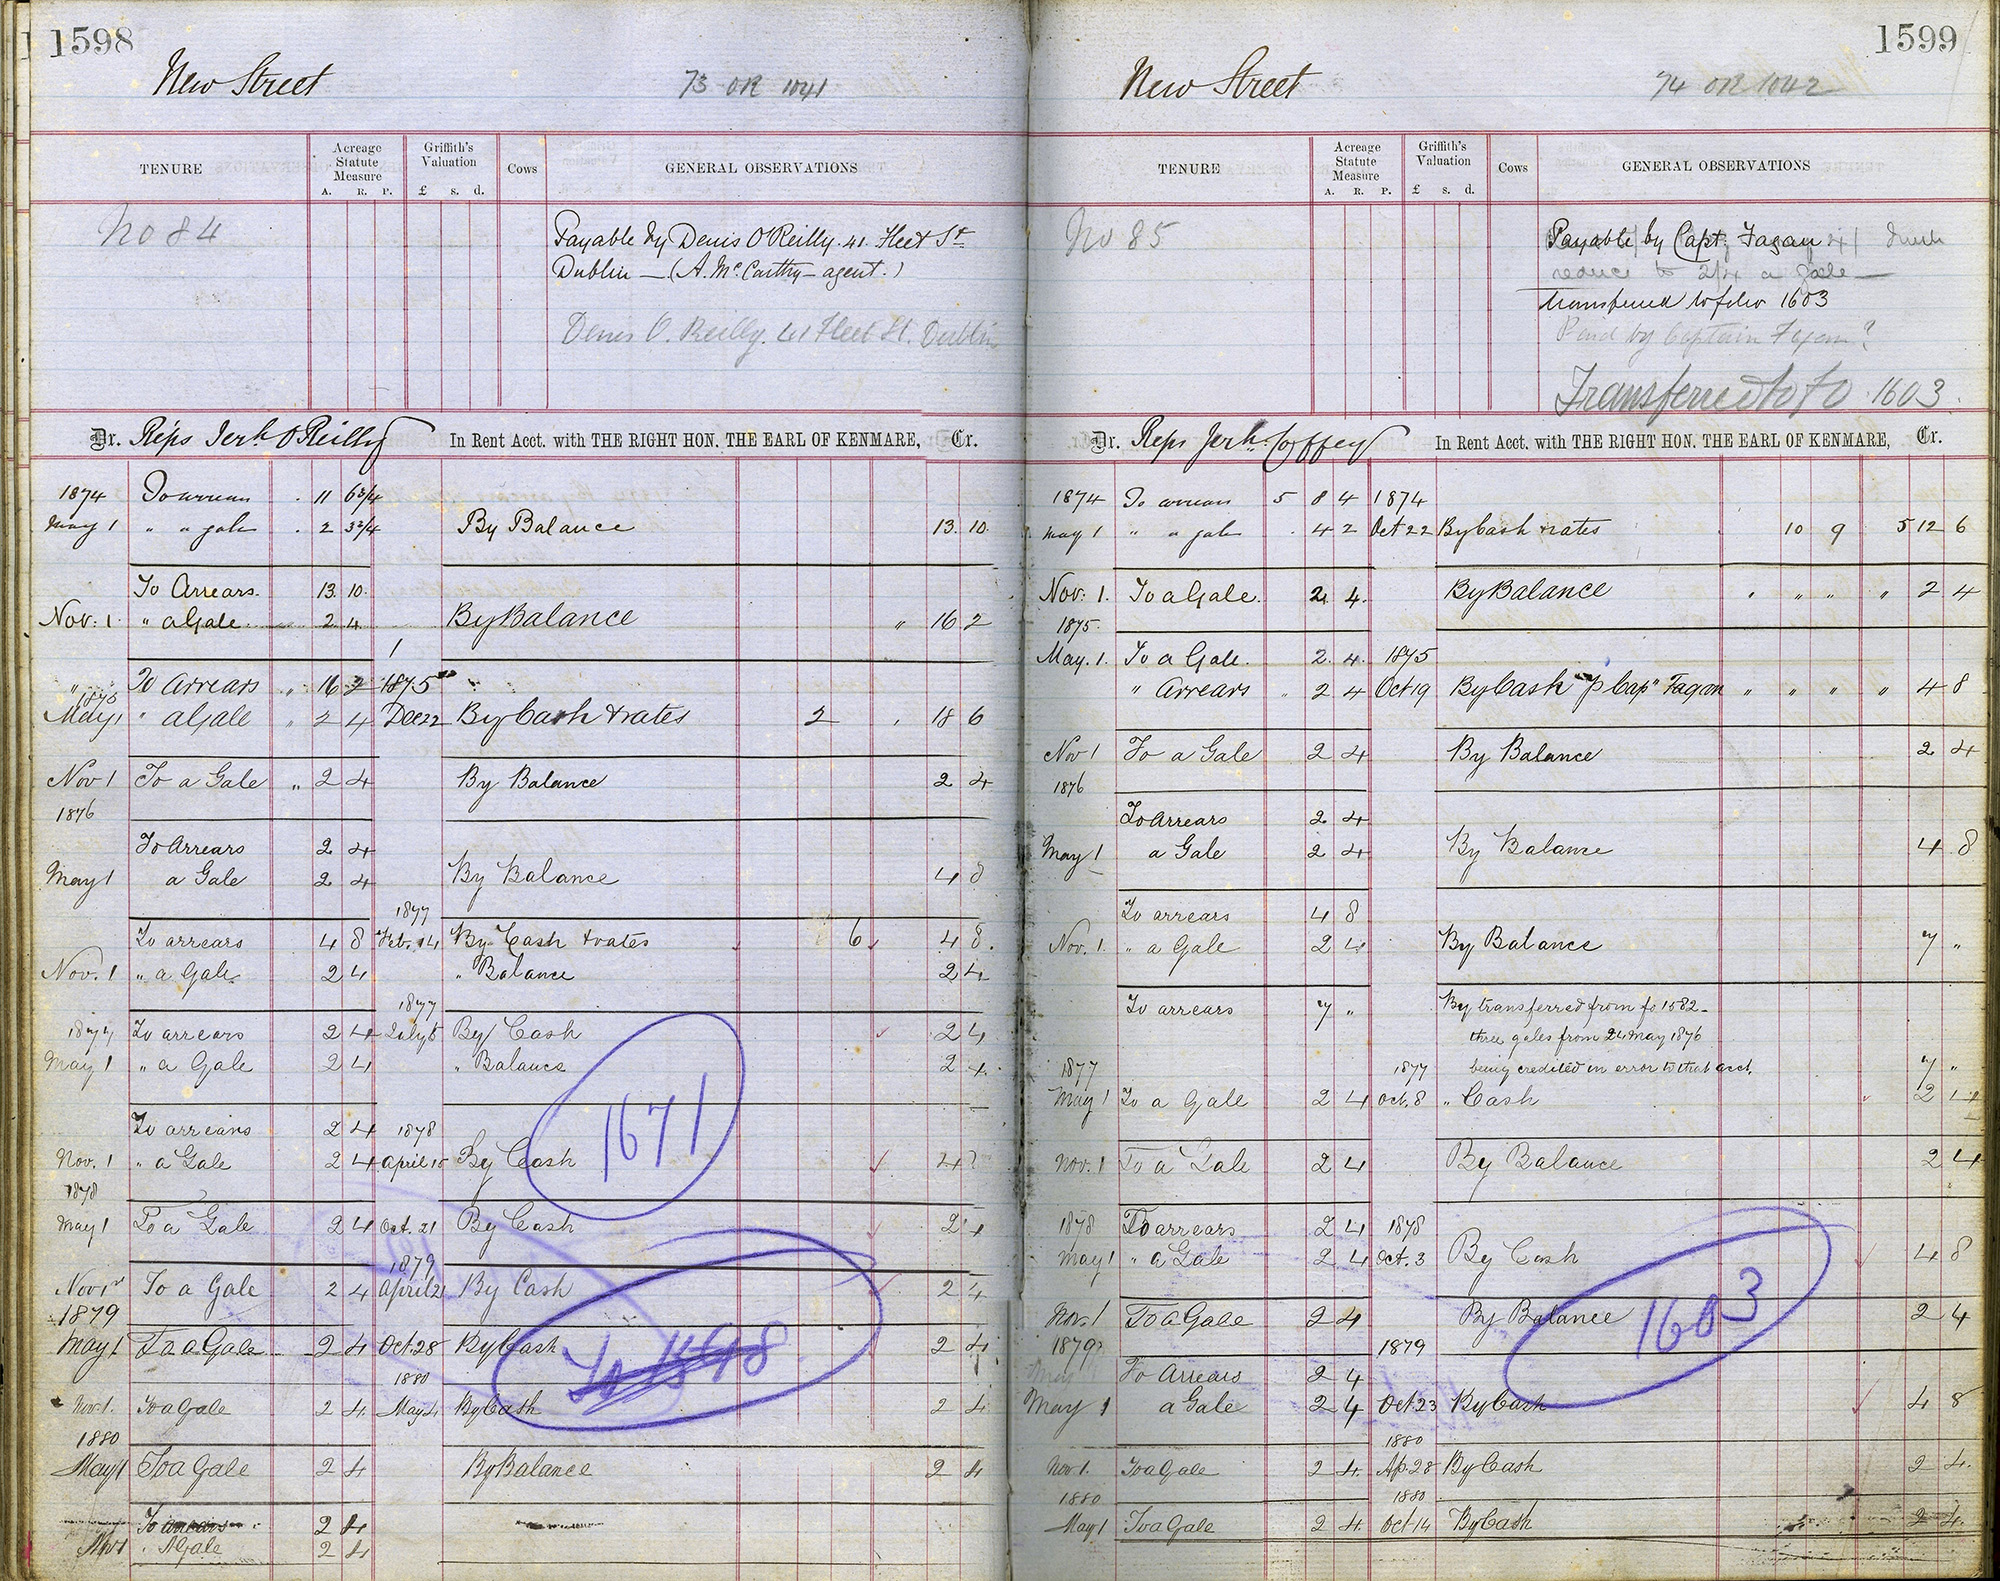 1598
New Street
73 OR 1041
TENURE
Acreage Statute Measure
A. R. P.
Griffith's Valuation
£ s. d.
Cows
GENERAL OBSERVATIONS
No 84
Payable by Denis O'Reilly 41 Fleet St
Dublin — (A. McCarthy — agent.)
Denis O. Reilly. 41 Fleet St. Dublin
Dr. Reps Jerh O'Reilly In Rent Acct. with THE RIGHT HON. THE EARL OF KENMARE, Cr.
1874 To arrears . 11 6 3/4
May 1 " a gale . 2 3 3/4 By Balance 13. 10.
To Arrears. 13. 10.
Nov: 1. " a Gale 2 4 By Balance " 16 2
" To Arrears " 16 2 1875
1875
May 1 " a Gale " 2 4 Dec 22 By Cash & rates 2 18 6
Nov 1 To a Gale " 2 4 By Balance 2 4
1876
To Arrears 2 4
May 1 a Gale 2 4 By Balance 4 8
1877
To arrears 4 8 Feb. 14 By Cash & rates 6 4 8.
Nov. 1 " a Gale 2 4 " Balance 2 4
1877
1877 To arrears 2 4 July 5 By Cash 2 4
May 1 " a Gale 2 4 " Balance 2 4
1671
To arrears 2 4 1878
Nov. 1 " a Gale 2 4 April 15 By Cash 4
1878
May 1 To a Gale 2 4 Oct. 21 By Cash 2 4
1879
Nov 1 To a Gale 2 4 April 21 By Cash 2 4
1879
May 1 To a Gale 2 4 Oct. 28 By Cash 2 4
1880
Nov. 1. To a Gale 2 4 May 4 By Cash 2 4
1880
May 1 To a Gale 2 4 By Balance 2 4
To arrears 2 4
Nov 1 " A Gale 2 4
1599
New Street
74 OR 1042
TENURE
Acreage Statute Measure
A. R. P.
Griffith's Valuation
£ s. d.
Cows
GENERAL OBSERVATIONS
No 85
Payable by Capt. Fagan
reduce to 2/4 a gale —
transferred to folio 1603
Paid by Captain Fagan?
Transferred to fo 1603.
Dr. Reps Jerh. Coffey In Rent Acct. with THE RIGHT HON. THE EARL OF KENMARE, Cr.
1874 To arrears 5 8 4 1874
May 1 " a gale . 4 2 Oct 22 By Cash & rates 10 9 5 12 6
Nov: 1. To a Gale. 2 4. By Balance " " " " 2 4
1875.
May. 1. To a Gale. 2. 4. 1875
" Arrears " 2 4 Oct 19 By Cash " p Cap" Fagan " " " " 4 8
Nov 1 To a Gale 2 4 By Balance 2 4
1876
To Arrears 2 4
May 1 a Gale 2 4 By Balance 4 8
To arrears 4 8
Nov. 1 " a Gale 2 4 By Balance 7 "
To arrears 7 " By transferred from fo 1582 -
three gales from 24 May 1876
1877 1877 being credited in error to that acct. 7 "
May 1 To a Gale 2 4 Oct. 8 " Cash 2 4
Nov. 1 To a Gale 2 4 By Balance 2 4
1878 To arrears 2 4 1878
May 1 " a Gale 2 4 Oct. 3 By Cash 4 8
Nov. 1 To a Gale 2 4 By Balance 2 4
1603
1879 1879
To Arrears 2 4
May 1 a Gale 2 4 Oct 23 By Cash 4 8
1880
Nov 1. To a Gale 2 4. Ap. 28 By Cash 2 4.
1880 1880
May 1 To a Gale 2 4. Oct 14 By Cash 2 4.